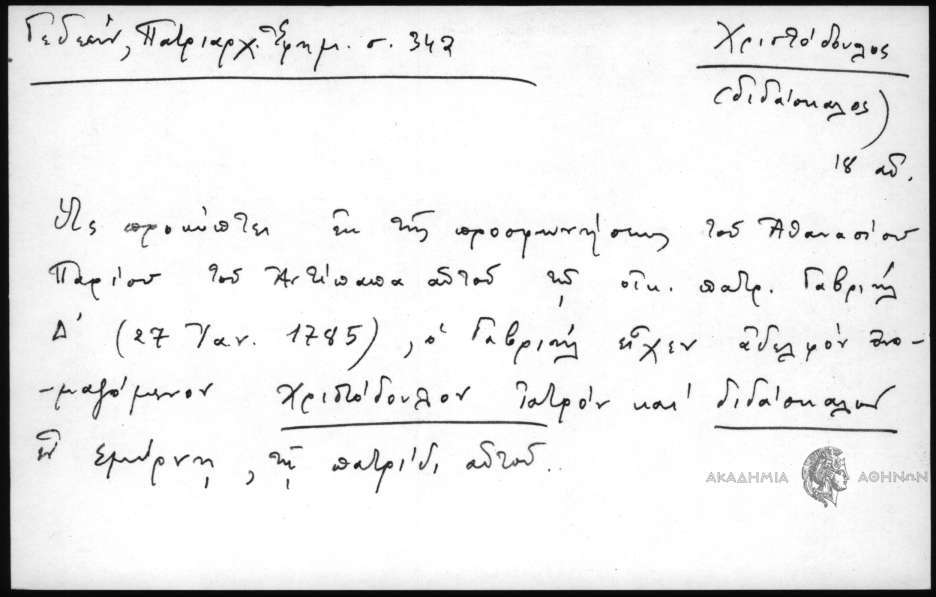 Γεδεών, Πατριαρχ. Ἐφημ. σ. 342
Χριστόδουλος
(διδάσκαλος)
18 αἰ.
Ὡς προκύπτει ἐκ τῆς προσφωνήσεως τοῦ Ἀθανασίου
Παρίου τοῦ Ἀντίπαπα αὐτοῦ τῷ οἰκ. πατρ. Γαβριήλ
Δ' (27 Ἰαν. 1785), ὁ Γαβριήλ εἶχεν ἀδελφόν ὀνο-
-μαζόμενον Χριστόδουλον ἰατρόν καί διδάσκαλον
ἐν Σμύρνῃ, τῇ πατρίδι αὐτοῦ..
ΑΚΑΔΗΜΙΑ ΑΘΗΝΩΝ